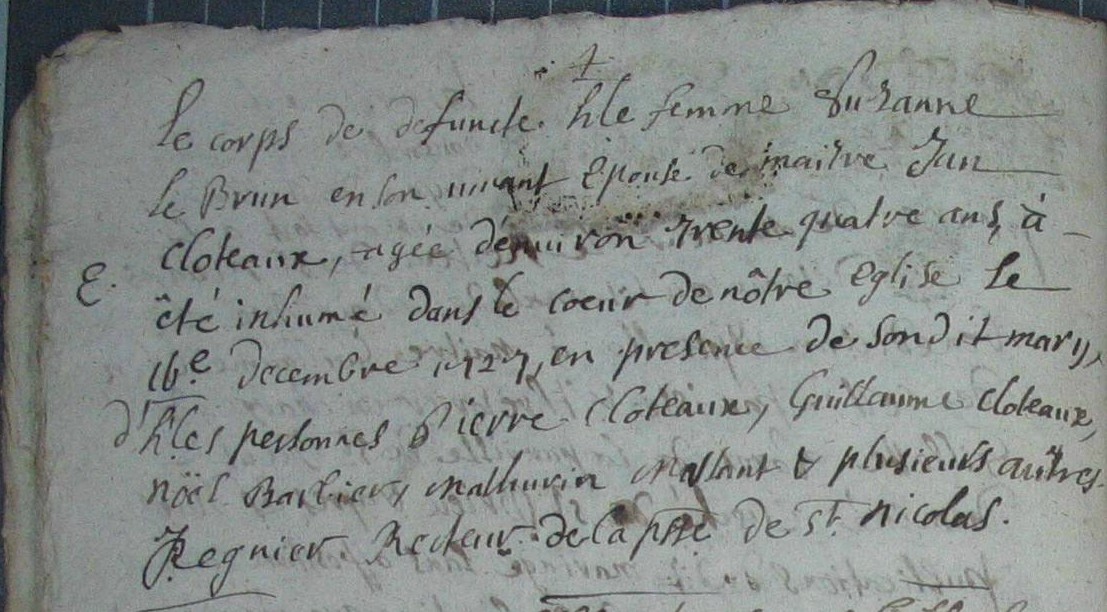 Le corps de defuncte hle femme Suzanne
le Brun en son vivant Epouse de maitre Jan
Cloteaux, agée d'énviron trente quatre ans, à
E. êté inhumé dans le coeur de nôtre Eglise le
16.e decembre 1727, en presence de son dit mary,
d'hles personnes Pierre Cloteaux, Guillaume Cloteaux,
nöel Barbier, Mathurin & plusieurs autres.
Regnier Recteur de la psse de st. Nicolas.